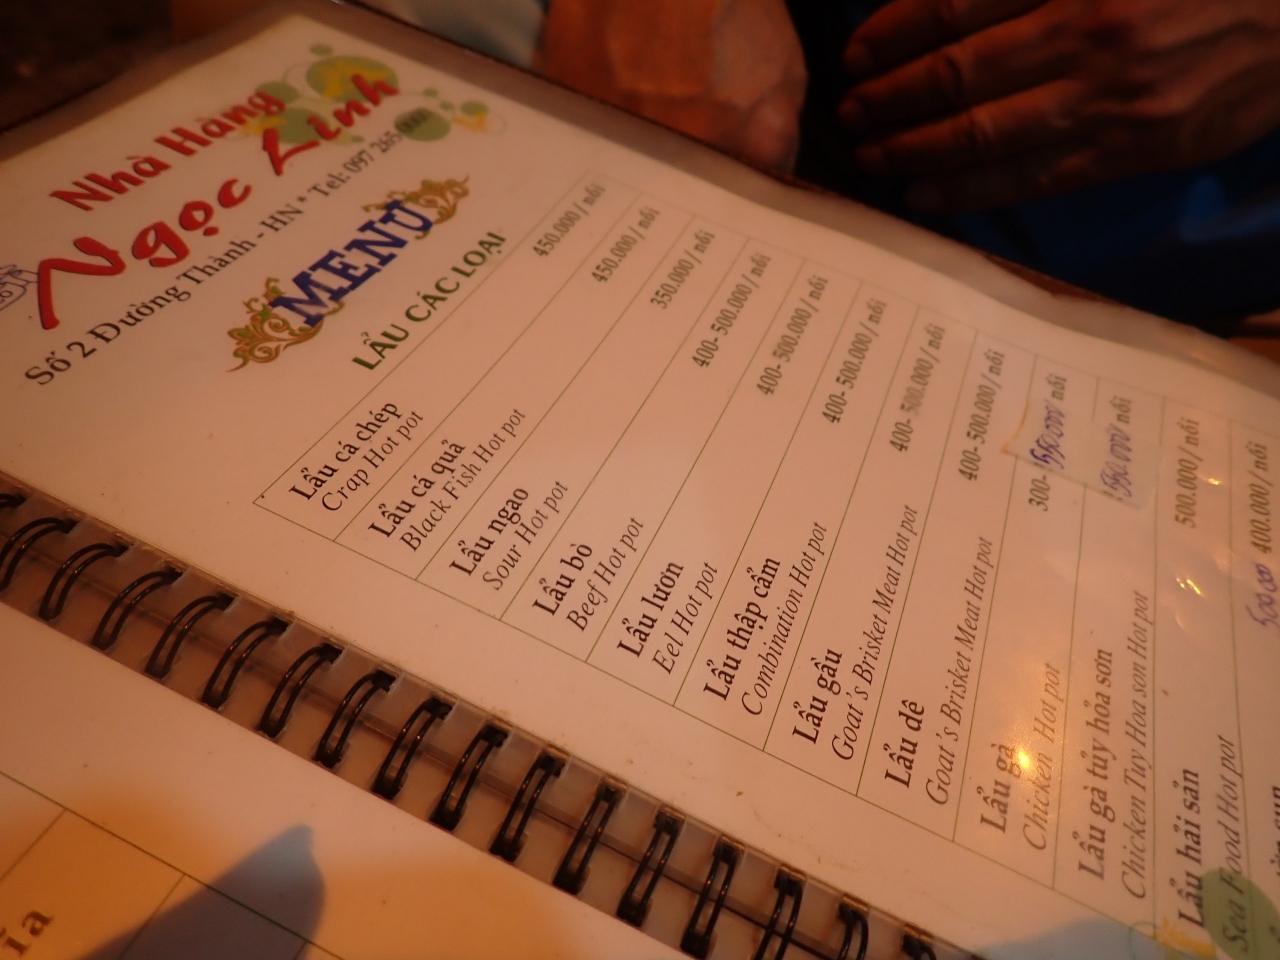 Nhà Hàng
Ngọc Linh
Số 2 Đường Thành - HN * Tel: 097 265
MENU
LẨU CÁC LOẠI
Lẩu cá chép 450.000 / nồi
Crap Hot pot
Lẩu cá quả 450.000 / nồi
Black Fish Hot pot
Lẩu ngao 350.000 / nồi
Sour Hot pot
Lẩu bò 400- 500.000 / nồi
Beef Hot pot
Lẩu lươn 400- 500.000 / nồi
Eel Hot pot
Lẩu thập cẩm 400- 500.000 / nồi
Combination Hot pot
Lẩu gầu 400- 500.000 / nồi
Goat's Brisket Meat Hot pot
Lẩu dê 400- 500.000 / nồi
Goat's Brisket Meat Hot pot
Lẩu gà 300- 550.000/ nồi
Chicken Hot pot
Lẩu gà tủy hỏa sơn 550.000/ nồi
Chicken Tuy Hoa son Hot pot
Lẩu hải sản 500.000 / nồi
Sea Food Hot pot
500.000 400.000 / nồi